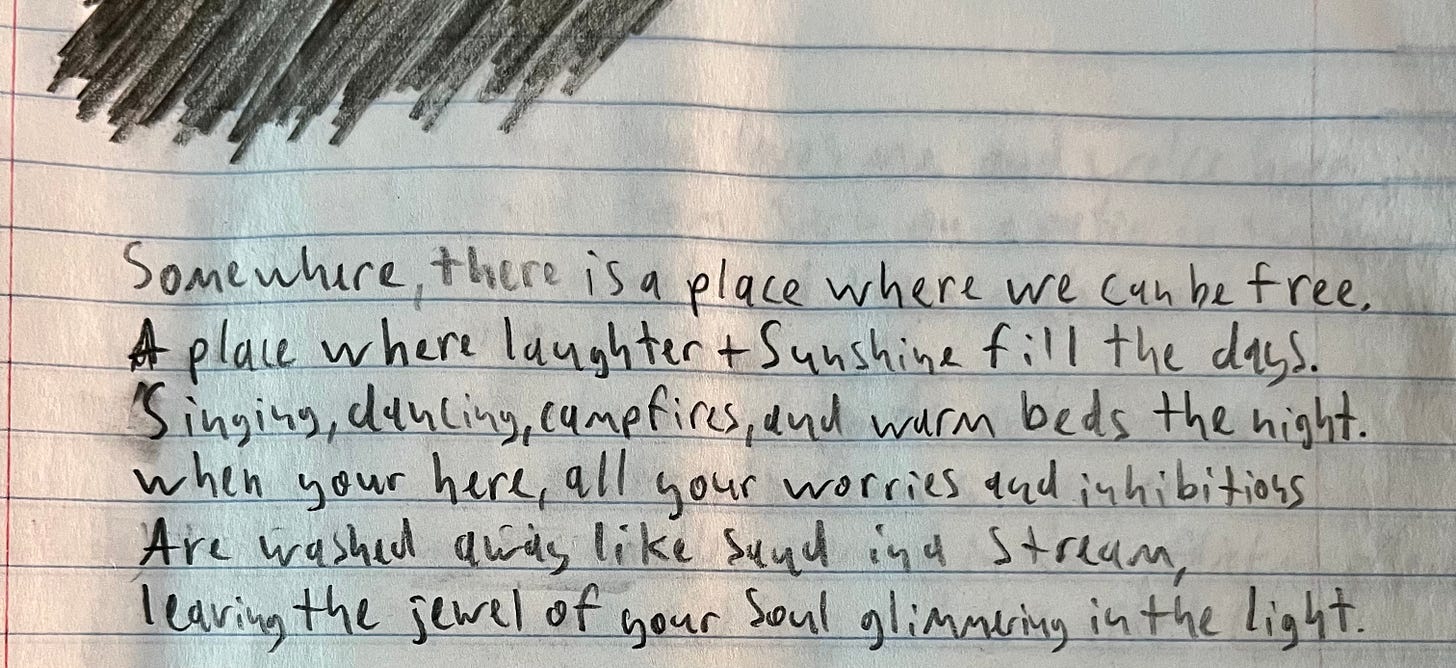 Somewhere, there is a place where we can be free.
A place where laughter + Sunshine fill the days.
Singing, dancing, campfires, and warm beds the night.
when your here, all your worries and inhibitions
Are washed away like sand in a stream,
leaving the jewel of your soul glimmering in the light.